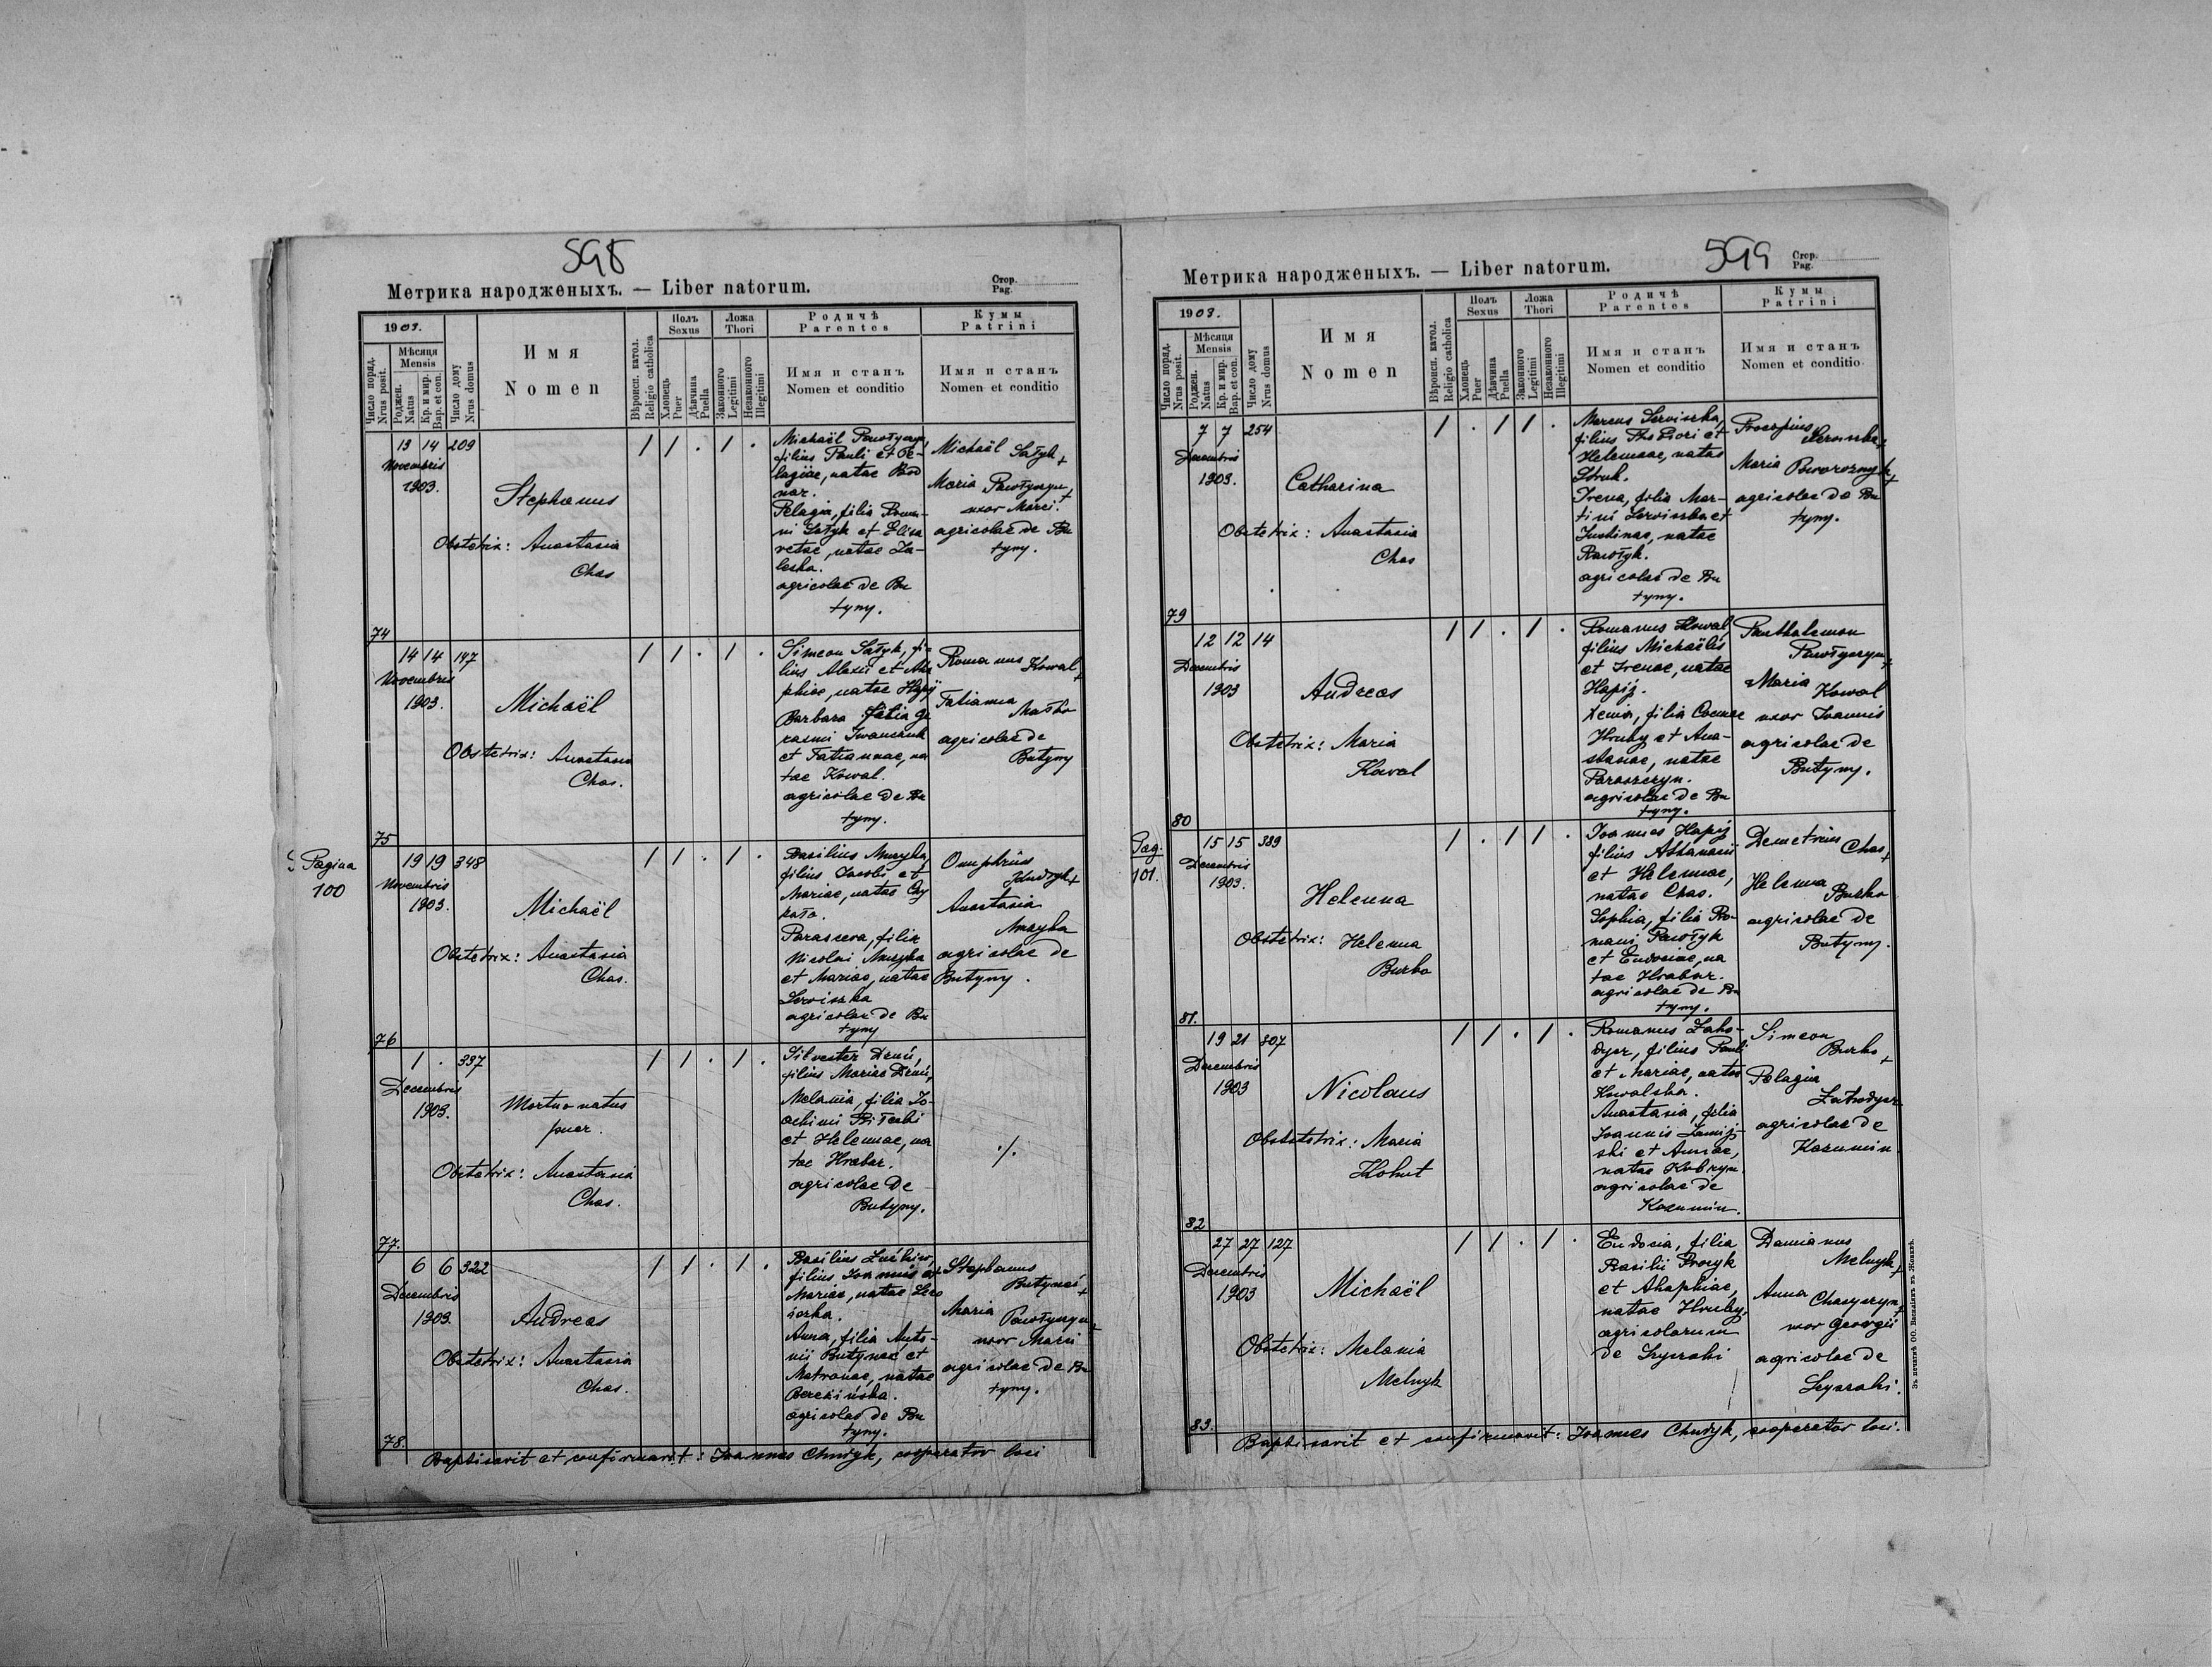 598
Метрика народженыхъ. — Liber natorum.
Стор.
Pag.
1903.
Число поряд.
Nrus posit.
Мѣсяця
Mensis
Роджен.
Natus
Кр. и мир.
Bap. et con.
Число дому
Nrus domus
Имя
Nomen
Вѣроисп. катол.
Religio catholica
Полъ
Sexus
Хлопець
Puer
Дѣвчина
Puella
Ложа
Thori
Законного
Legitimi
Незаконного
Illegitimi
Родичѣ
Parentes
Имя и станъ
Nomen et conditio
Кумы
Patrini
Имя и станъ
Nomen et conditio
74
13 14 209
Novembris
1903.
Stephanus
Obstetrix: Anastasia
Chas
1 1 . 1 .
Michaël
filius Pauli et Pe-
lagiae, natae Bod
nar.
Pelagia, filia Roma-
ni Satyk et Elisa
vetae, natae Za-
leska.
agricolae de Bu
tyny.
Michaël Satyk +
Maria
uxor Marci.
agricolae de Bu
tyny.
75
14 14 147
Novembris
1903.
Michaël
Obstetrix: Anastasia
Chas.
1 1 . 1 .
Simeon Satyk, fi-
lius Alexii et Aha
phiae, natae Hapij
Barbara filia Ge
rasmi Iwanczuk
et Tatiannae, na
tae Kowal.
agricolae de Bu
tyny.
Romanus Kowal +
Tatianna
agricolae de
Butyny
Pagina
100
76
19 19 348
Novembris
1903.
Michaël
Obstetrix: Anastasia
Chas.
1 1 . 1 .
Basilius Muzyka,
filius Jacobi et
Mariae, natae
Parasceva, filia
Nicolai Muzyka
et Mariae, natae
Serwiszka
agricolae de Bu
tyny
Onuphrius
Anastasia
Muzyka
agricolae de
Butyny.
77.
1 . 337
Decembris
1903.
Mortuo natus
puer.
Obstetrix: Anastasia
Chas.
1 1 . 1 .
Silvester
filius Mariae
Melania, filia Jo-
achimi
et Helennae, na
tae Hrabar.
agricolae de
Butyny.
./.
78.
6 6 322
Decembris
1903.
Andreas
Obstetrix: Anastasia
Chas.
1 1 . 1 .
Basilius
filius Joannis et
Mariae, natae
Anna, filia Anto-
nii Butynec et
Matronae, natae
agricolae de Bu
tyny.
Stephanus
Butynec +
Maria
uxor Marci
agricolae de Bu
tyny.
Baptisavit et confirmavit: Joannes Chudyk, cooperator loci
599
Метрика народженыхъ. — Liber natorum.
Стор.
Pag.
1903.
Число поряд.
Nrus posit.
Мѣсяця
Mensis
Роджен.
Natus
Кр. и мир.
Bap. et con.
Число дому
Nrus domus
Имя
Nomen
Вѣроисп. катол.
Religio catholica
Полъ
Sexus
Хлопець
Puer
Дѣвчина
Puella
Ложа
Thori
Законного
Legitimi
Незаконного
Illegitimi
Родичѣ
Parentes
Имя и станъ
Nomen et conditio
Кумы
Patrini
Имя и станъ
Nomen et conditio
79
7 7 254
Decembris
1903.
Catharina
Obstetrix: Anastasia
Chas
1 . 1 1 .
Marcus Serwiszka,
filius Thodori et
Helennae, natae
Struk.
Irena, filia Mar-
tini Serwiszka et
Justinae, natae
Pawłyk.
agricolae de Bu
tyny.
Procopius
Serwiszka +
Maria Poworoznyk +
agricolae de Bu
tyny.
80
12 12 14
Decembris
1903
Andreas
Obstetrix: Maria
Kowal
1 1 . 1 .
Romanus Kowal,
filius Michaëlis
et Irenae, natae
Hapij.
Xenia, filia Cosmae
Hruby et Ana-
stasiae, natae
agricolae de Bu
tyny.
Panthalemon
Maria Kowal
uxor Joannis
agricolae de
Butyny.
Pag.
101.
81.
15 15 389
Decembris
1903.
Helenna
Obstetrix: Helenna
Burko
1 . 1 1 .
Joannes Hapij
filius Athanasii
et Helennae,
natae Chas.
Sophia, filia Ro-
mani Pawłyk
et Eudociae, na
tae Hrabar.
agricolae de Bu
tyny.
Demetrius Chas +
Helenna
Burko
agricolae de
Butyny.
82
19 21 307
Decembris
1903
Nicolaus
Obstetrix: Maria
Kohut
1 1 . 1 .
Romanus Zaho-
dyar, filius Pauli
et Mariae, natae
Kowalska.
Anastasia, filia
Joannis
et Annae,
natae
agricolae de
Kozumin.
Simeon
Burko +
Pelagia
agricolae de
Kozumin.
83.
27 27 127
Decembris
1903
Michaël
Obstetrix: Melania
Melnyk
1 1 . 1 .
Eudocia, filia
Basilii
et Ahaphiae,
natae Hruby.
agricolarum
de
Damianus
Melnyk +
Anna
uxor Georgii
agricolae de
Baptisavit et confirmavit: Joannes Chudyk, cooperator loci.
Зъ печатнѣ ОО. Василіянъ въ Жовквѣ.